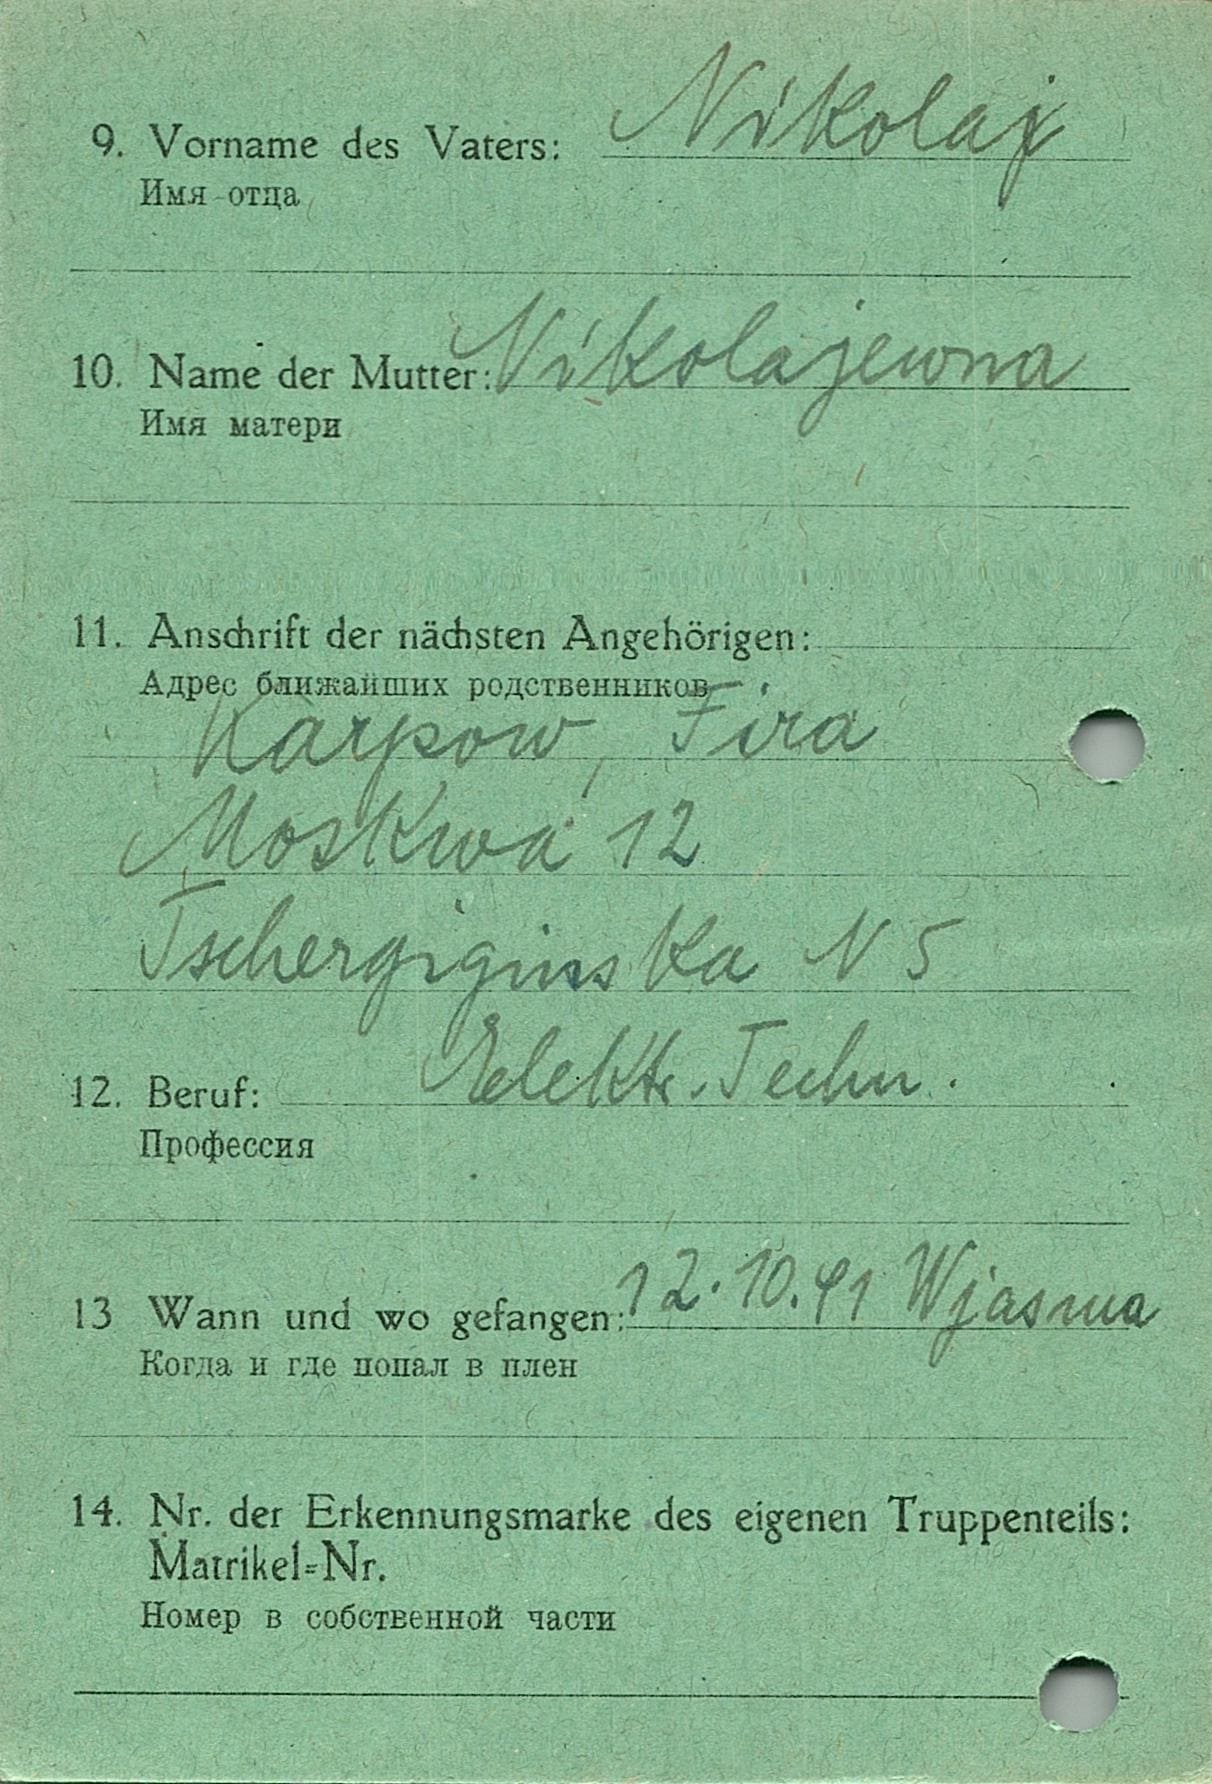 9. Vorname des Vaters: Nikolaj
Имя отца
10. Name der Mutter: Nikolajewna
Имя матери
11. Anschrift der nächsten Angehörigen:
Адрес ближайших родственников
Karpow, Fira
Moskwa 12
Tschergiginska N 5
12. Beruf: Elektr. Techn.
Профессия
13 Wann und wo gefangen: 12.10.41 Wjasma
Когда и где попал в плен
14. Nr. der Erkennungsmarke des eigenen Truppenteils:
Matrikel=Nr.
Номер в собственной части